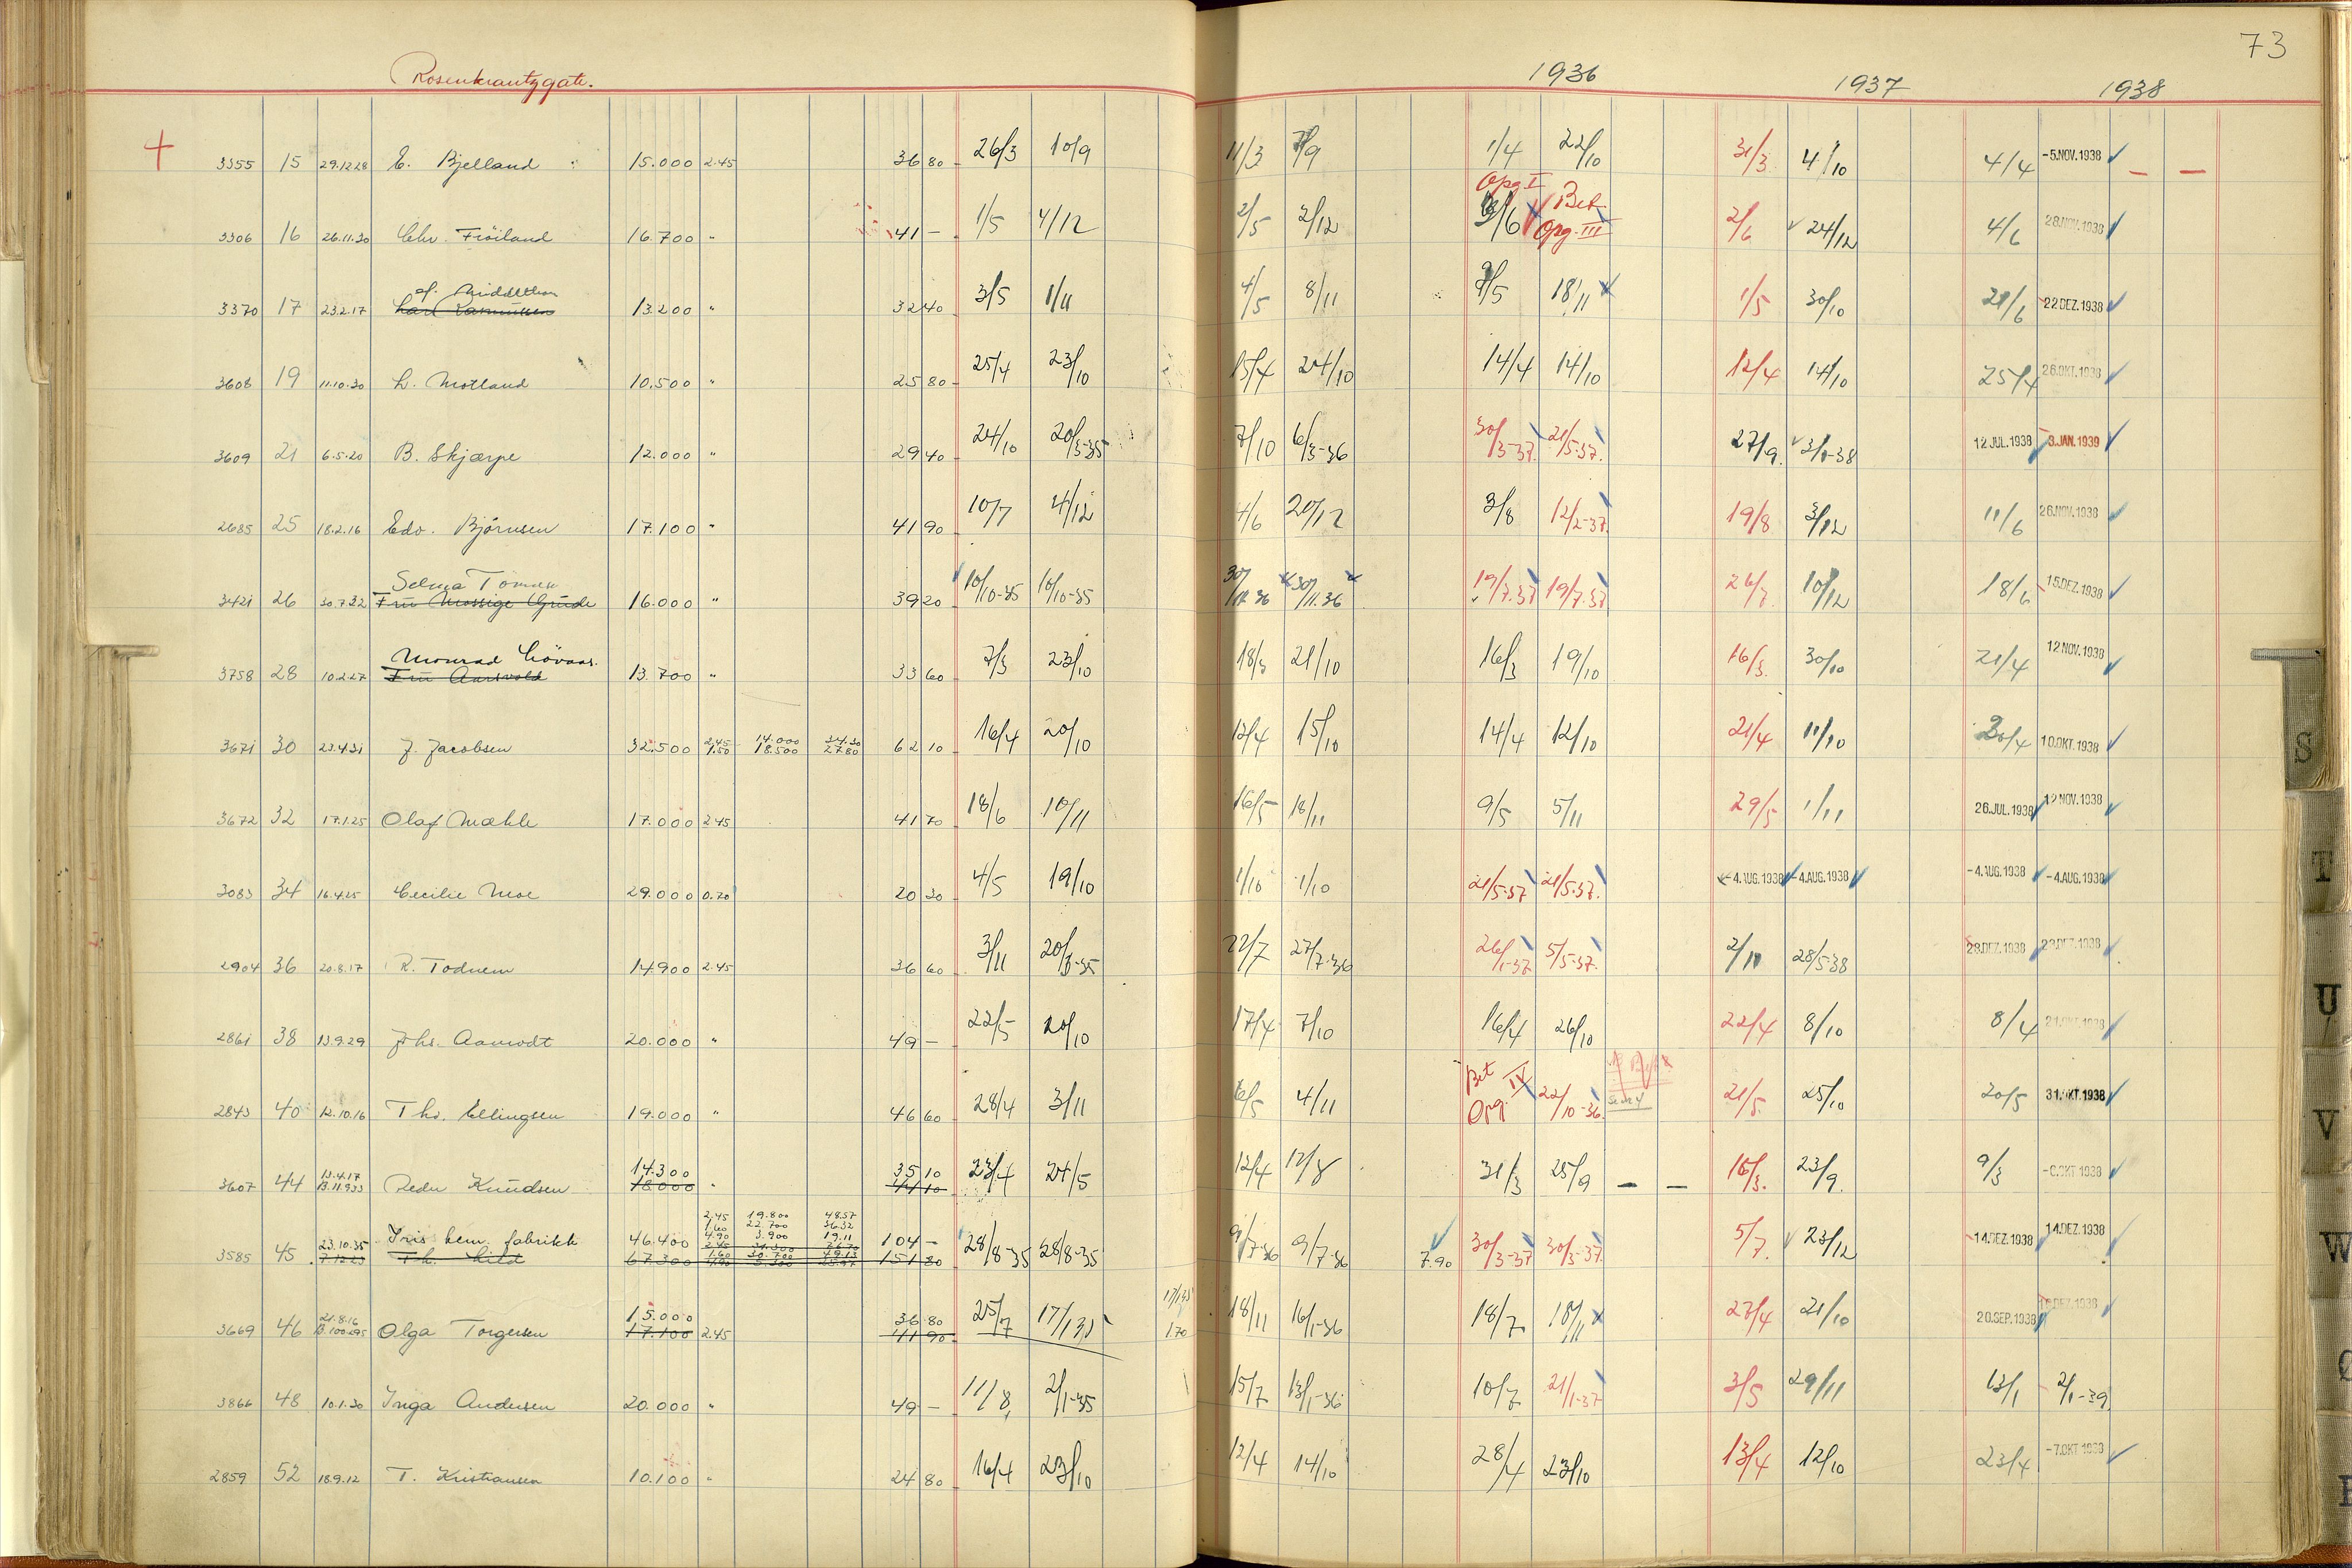 73
Rosenkrantzgate. 1936 1937 1938
+ 3355 15 29.12.28 E. Bjelland 15.000 2.45 36 80 26/3 10/9 11/3 7/9 1/4 22/10 31/3 4/10 4/4 -5.NOV.1938 — —
Opg I Bet
3306 16 26.11.30 Chr. Fröiland 16.700 " 41 — 1/5 4/12 2/5 2/12 /6 Opg. III 2/6 24/12 4/6 28.NOV.1938
Middelthon
3370 17 23.2.17 13.200 " 32 40 3/5 1/11 4/5 8/11 /5 18/11 1/5 30/10 21/6 22 DEZ.1938
3608 19 11.10.30 L. Motland 10.500 " 25 80 25/4 23/10 15/4 24/10 14/4 14/10 12/4 14/10 25/4 26.OKT.1938
3609 21 6.5.20 B. Skjærpe 12.000 " 29 40 24/10 20/3-35 7/10 6/3-36 30/3-37 21/5-37. 27/9. 3/1-38 12 JUL.1938 -3.JAN.1939
2685 25 18.2.16 Edv. Björnsen 17.100 " 41 90 10/7 4/12 4/6 20/12 3/8 12/2-37. 19/8 3/12 11/6 26.NOV.1938
Selma
3421 26 30.7.32 Frü Mossige Grude 16.000 " 39 20 10/10-35 10/10-35 30/11.36 30/11.36 19/7.37 19/7.37 26/7 10/12 18/6 15.DEZ.1938
Monrad Lövaas.
3758 28 10.2.27 Frü Aarsvold 13.700 " 33 60 7/3 23/10 18/3 21/10 16/3 19/10 16/3. 30/10 21/4 12 NOV.1938
3671 30 23.4.31 J. Jacobsen 32.500 2.45 14.000 34.30 62 10 16/4 20/10 12/4 15/10 14/4 12/10 21/4 11/10 20/4 10.OKT.1938
1.50 18.500 27.80
3672 32 17.1.25 Olaf Mæhle 17.000 2.45 41 70 18/6 10/11 16/5 18/11 9/5 5/11 29/5 1/11 26.JUL.1938 12 NOV.1938
3083 34 16.4.25 Cecilie Moe 29.000 0.70 20 30 4/5 19/10 1/10 1/10 21/5-37 21/5-37. -4.AUG.1938 -4.AUG.1938 -4.AUG.1938 -4.AUG.1938
2904 36 20.8.17 R. Todnem 14.900 2.45 36 60 3/11 22/7 27/7-36 26/1-37 5/5-37. 2/10 28/5-38 28.DEZ.1938 28.DEZ.1938
2861 38 13.9.29 Jhs. Aamodt 20.000 " 49 — 22/5 20/10 17/4 7/10 16/4 26/10 22/4 8/10 8/4 21.OKT.1938
Bet IV
2843 40 12.10.16 Ths. Ellingsen 19.000 " 46 60 28/4 3/11 6/5 4/11 Opg. 22/10-36. 21/5. 25/10 20/5 31.OKT.1938
13.4.17 14.300 35 10
3607 44 B.11.933 Peder Knüdsen 18.000 " 44 10 23/4 24/5 12/4 12/8 31/3 25/9 — — 15/3. 23/9. 9/3 OKT 1938
2.45 19.800 48.57
1.60 22.700 36.32
23.10.35 Iris kem. fabrikk 46.400 4.90 3.900 19.11 104 — 28/8-35 28/8-35 9/7-36 9/7-36 30/3-37 30/3-37. 5/7. 23/12 14.DEZ.1938 14.DEZ.1938
3585 45 7.12.23 Th. Lild 67.300 1.60 30.700 49.13 151 80 7.90
21.8.16 15.000 36 80
3669 46 Olga Torgersen 17.100 2.45 41 90 25/7 17/1 35 1.70 18/11 16/1-36 18/7 18/11 27/4 21/10 20.SEP.1938 DEZ.1938
3866 48 10.1.30 Inga Andersen 20.000 " 49 — 11/8 2/1-35 15/7 13/1-36 10/7 21/1-37 3/5 29/11 13/1 2/1-39
2859 52 18.9.12 T. Kristiansen 10.100 " 24 80 16/4 23/10 12/4 14/10 28/4 23/10 13/4 12/10 23/4 -7.OKT 1938
S
T
U
V
W